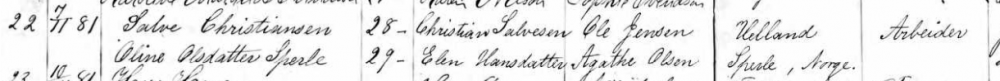 22 7/11 81 Salve Christiansen 28 - Christian Salvesen Ole Jensen Helland Arbeider
Oline Olsdatter Sperle 29 - Elen Hansdatter Agathe Olsen Sperle, Norge.